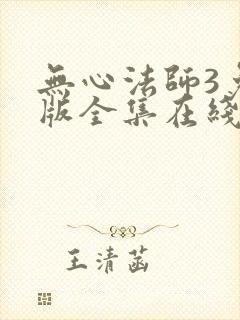 無心法師3
版全集在綫
王清菡